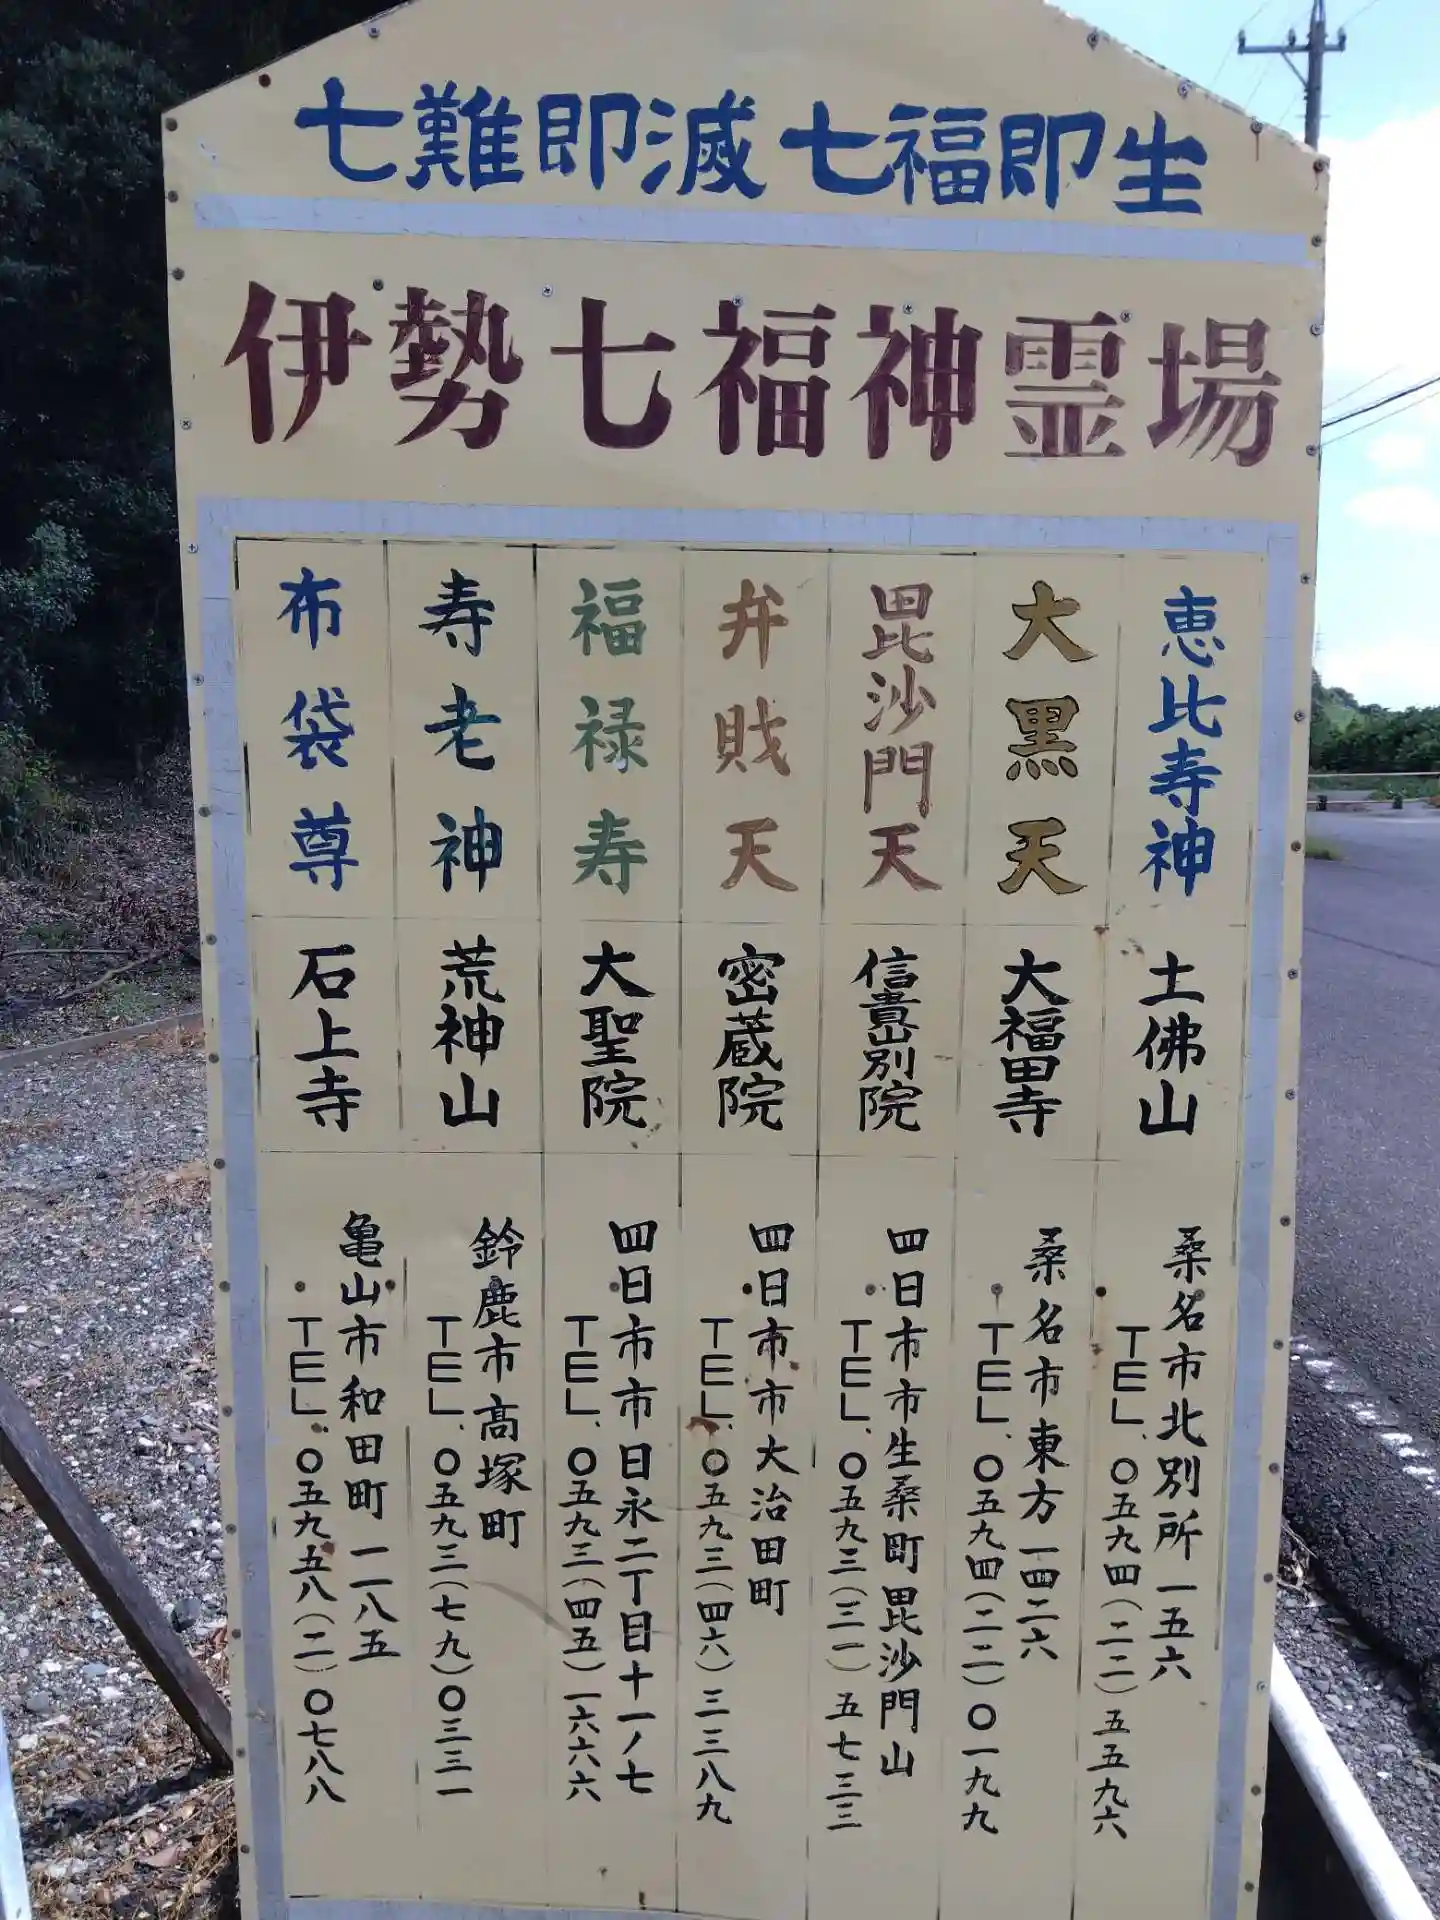 七難即滅 七福即生
伊勢七福神霊場
恵比寿神
土佛山
桑名市北別所一五六
TEL、〇五九四(二二)五五九六
大黒天
大福田寺
桑名市東方一四二六
TEL、〇五九四(二二)〇一九九
毘沙門天
信貴山別院
四日市市生桑町毘沙門山
TEL、〇五九三(三一)五七三三
弁財天
密蔵院
四日市市大治田町
TEL、〇五九三(四六)三三八九
福禄寿
大聖院
四日市市日永二丁目十一ノ七
TEL、〇五九三(四五)一六六六
寿老神
荒神山
鈴鹿市高塚町
TEL、〇五九三(七九)〇三三一
布袋尊
石上寺
亀山市和田町一一八五
TEL、〇五九五八(二)〇七八八